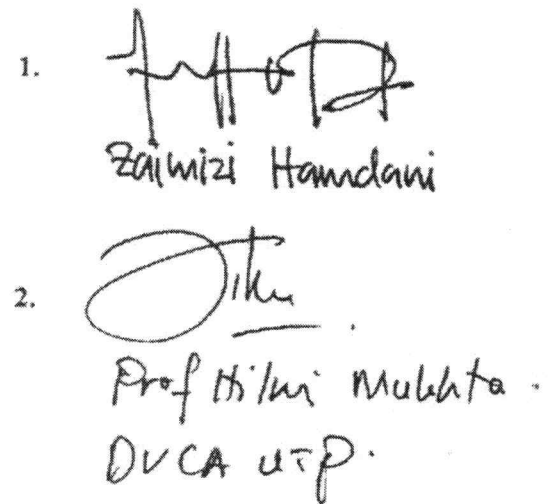 1.
Zaimizi Hamdani
2.
Prof Hilmi Mukhta.
DVCA UTP.